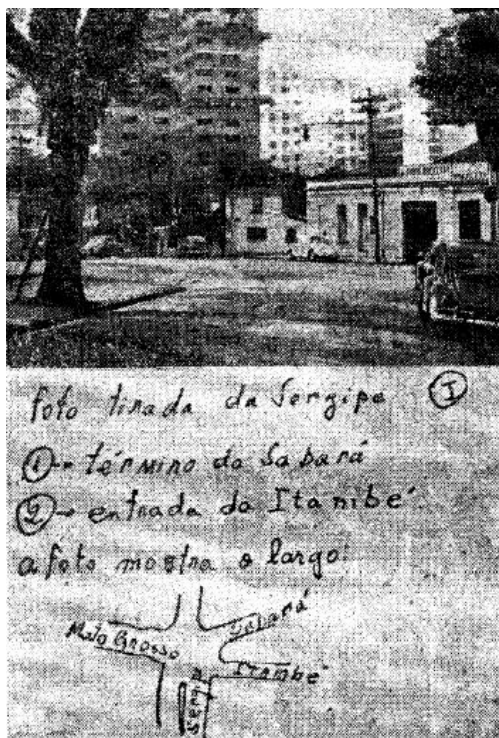 foto tirada da Sergipe I
1 - término da Sabará
2 - entrada da Itambé
a foto mostra o largo.
Sabará
Mato Grosso
Itambé
Sergipe